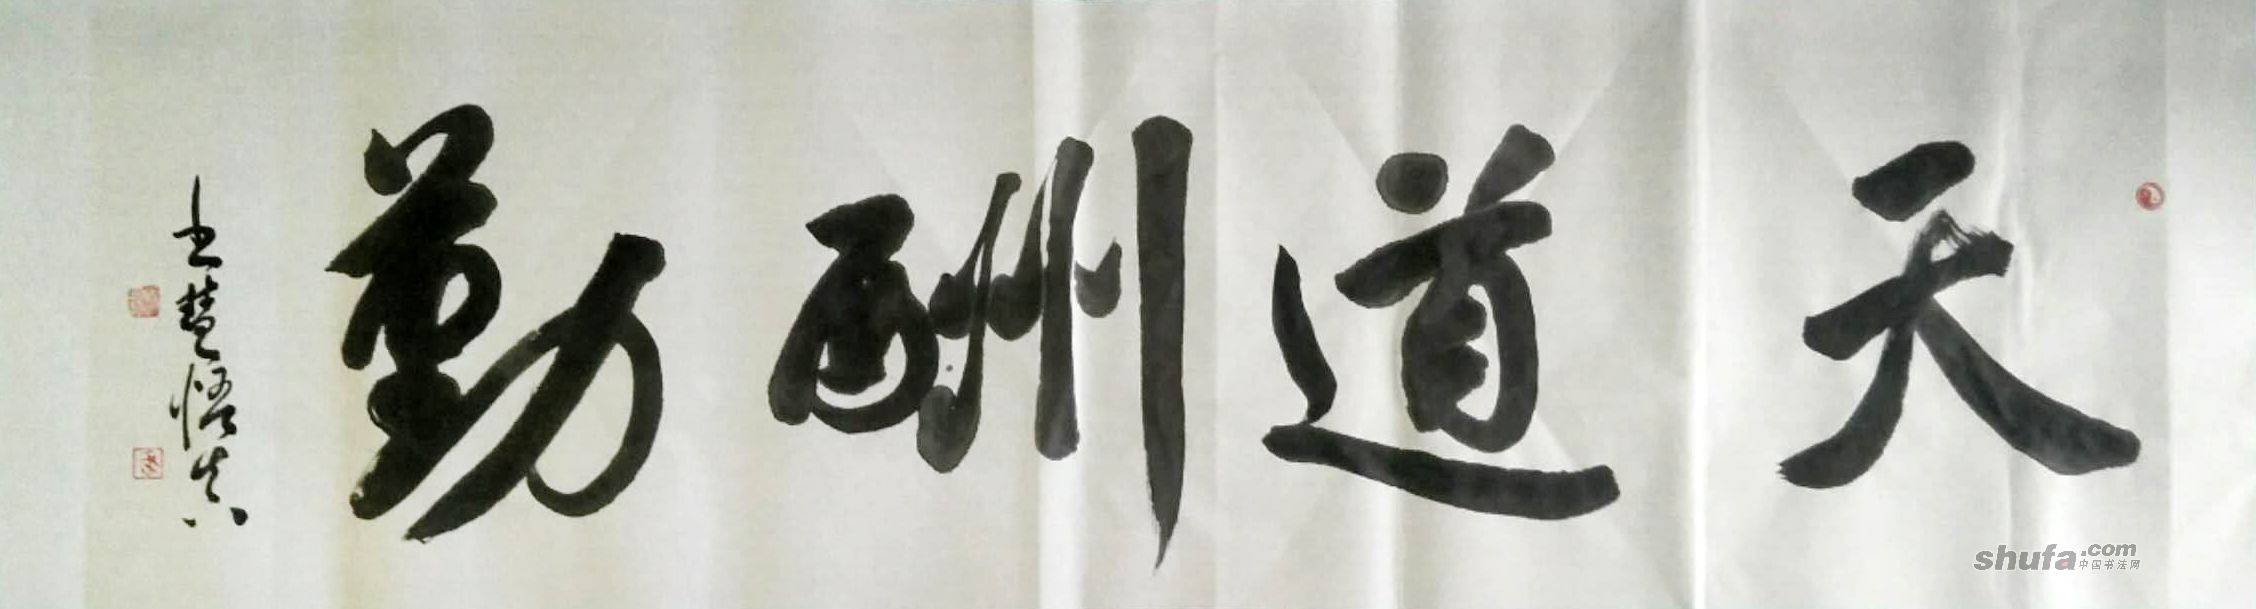 天道酬勤
shufa.com
中国书法网